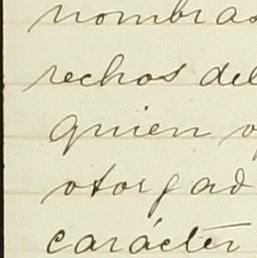 nombras
rechos del
quien o
otorgad
carácter